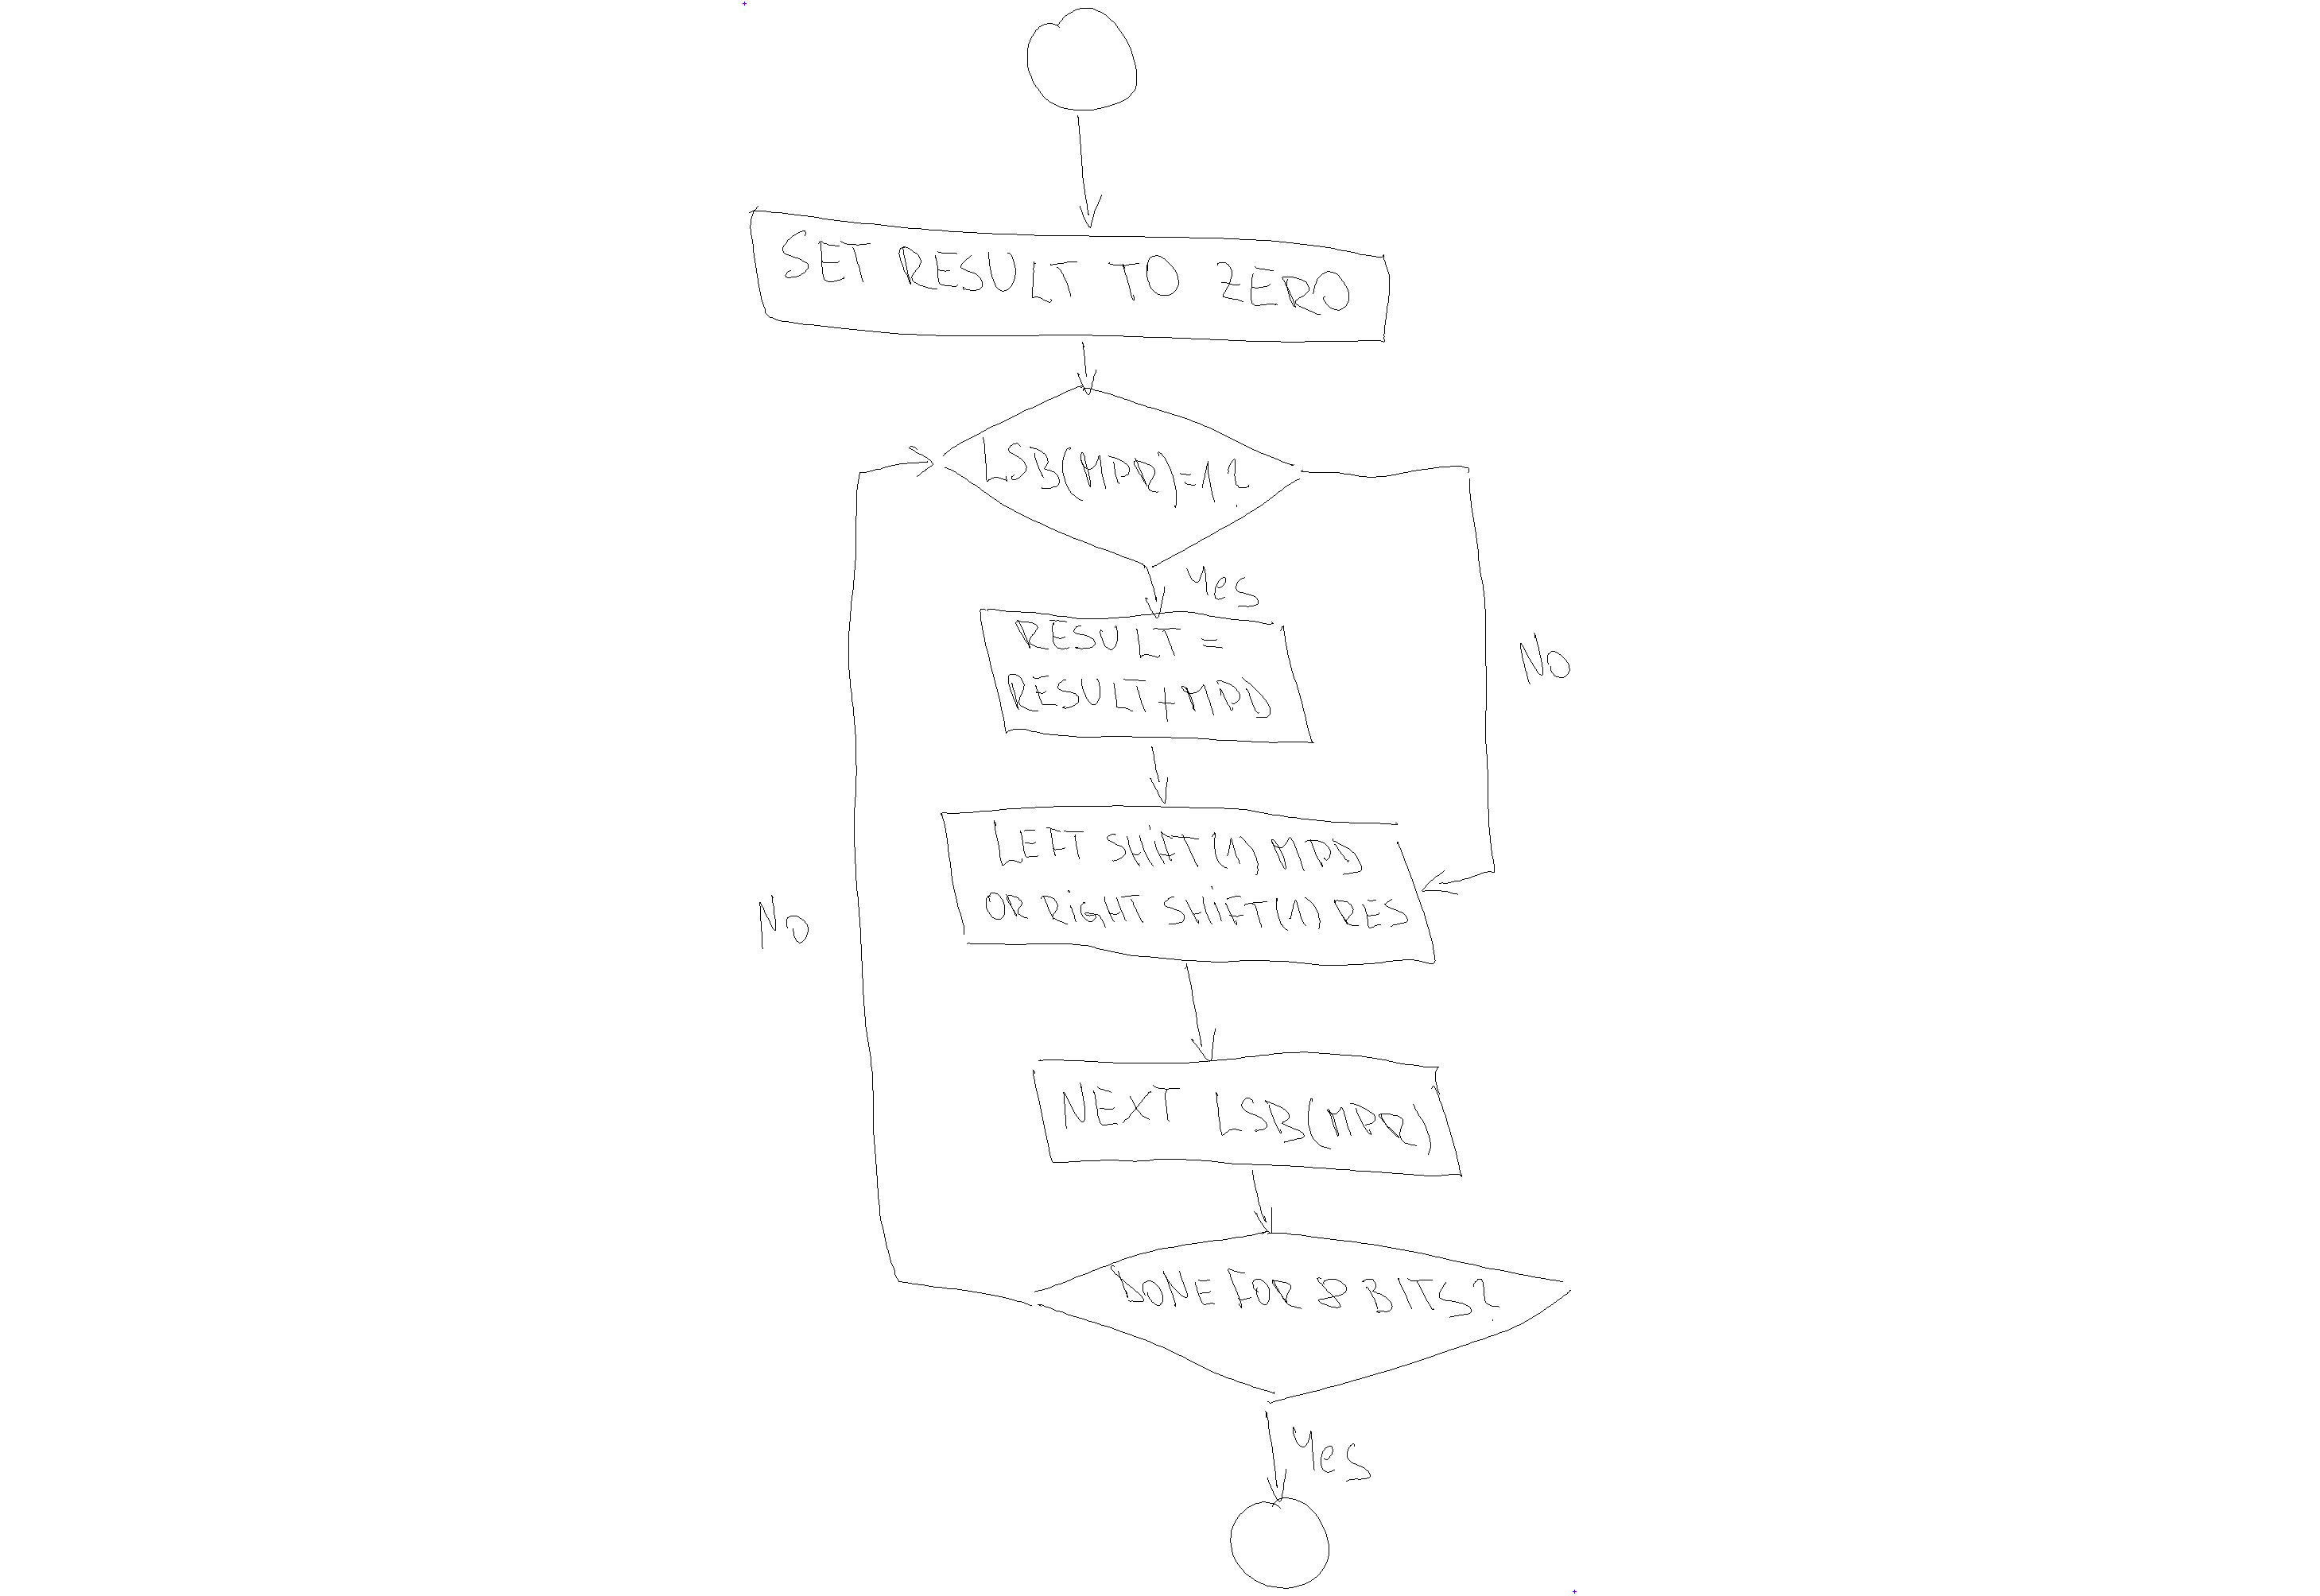 SET RESULT TO ZERO
LSB(MPR)=1?
Yes
RESULT =
RESULT+MPD
No
LEFT SHiFT(1) MPD
OR RiGHT SHiFT(1) RES
No
NEXT LSB(MPR)
DONE FOR 8 BITS?
Yes